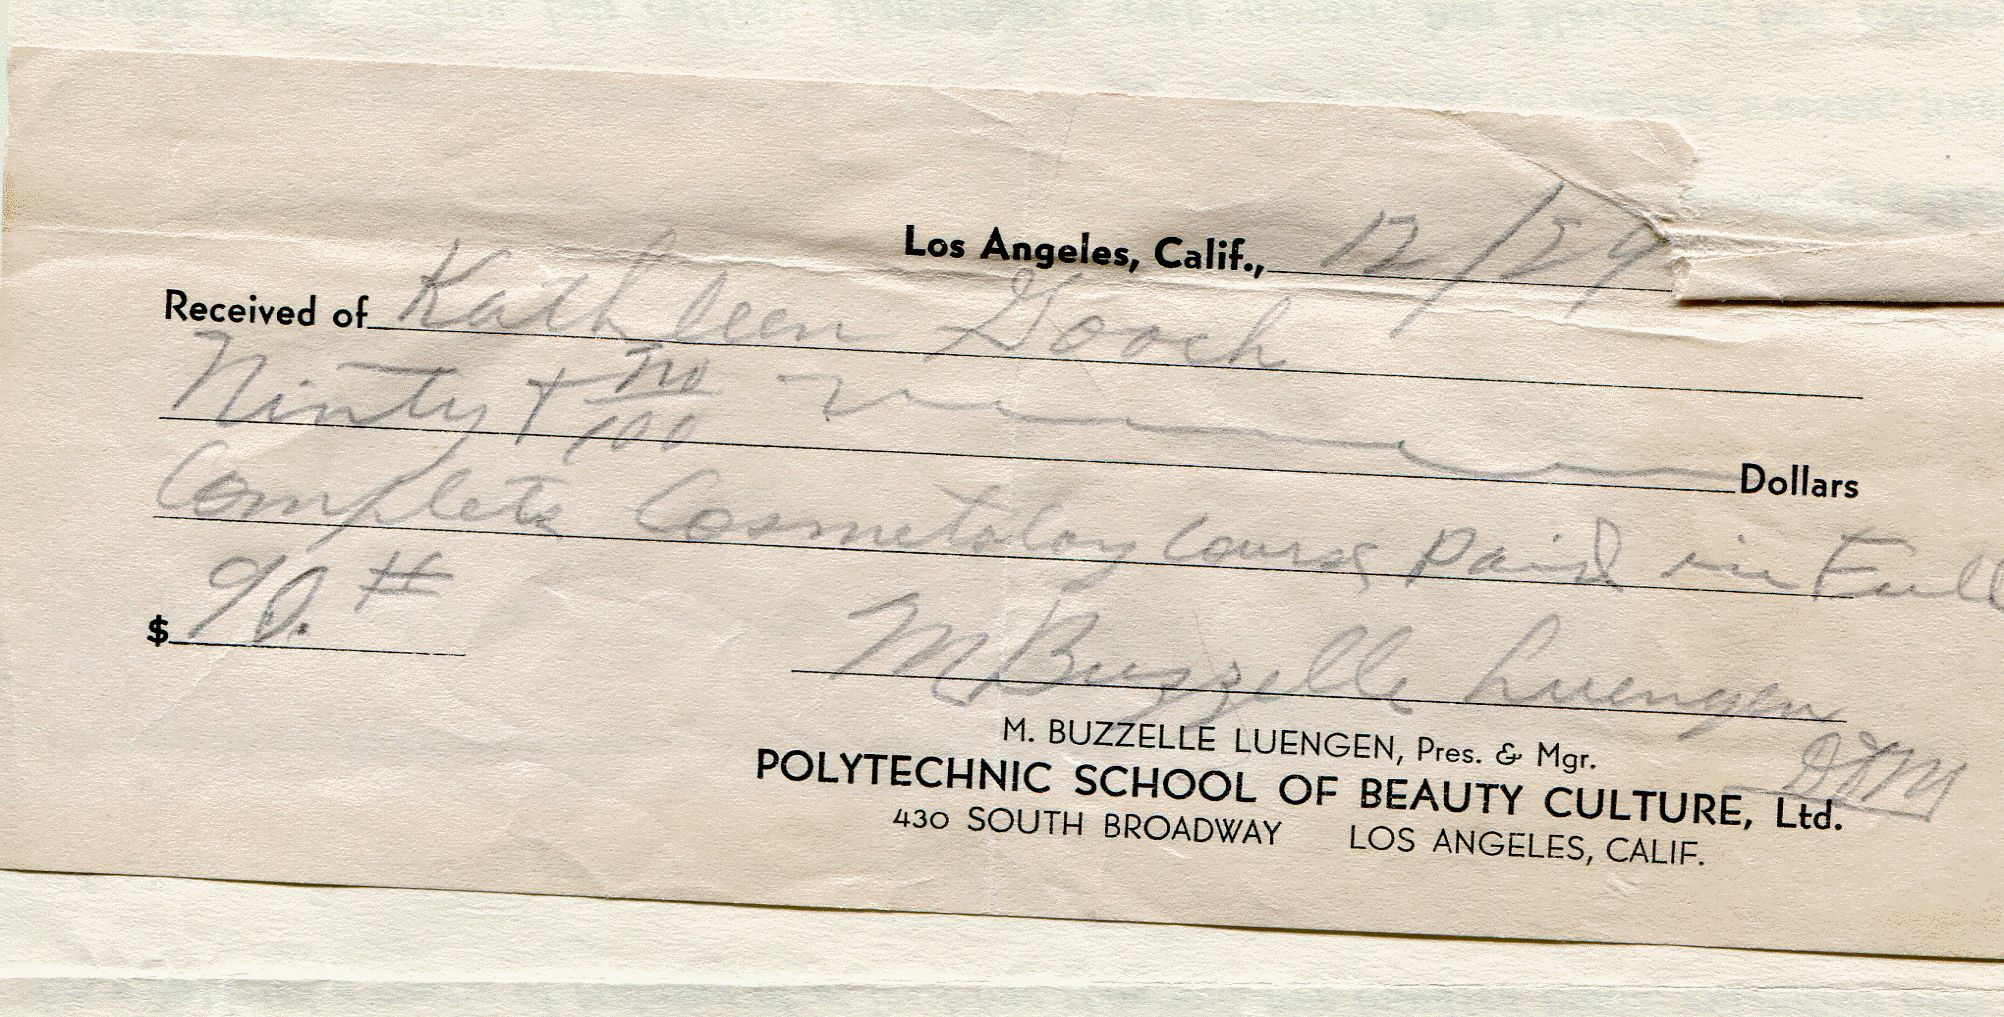 Los Angeles, Calif., 12/29
Received of Kathleen Gooch
Ninty + no/100 Dollars
Complete Cosmetology Course Paid in Full
$ 90.
M Buzzelle Luengen
M. BUZZELLE LUENGEN, Pres. & Mgr.
POLYTECHNIC SCHOOL OF BEAUTY CULTURE, Ltd.
430 SOUTH BROADWAY LOS ANGELES, CALIF.